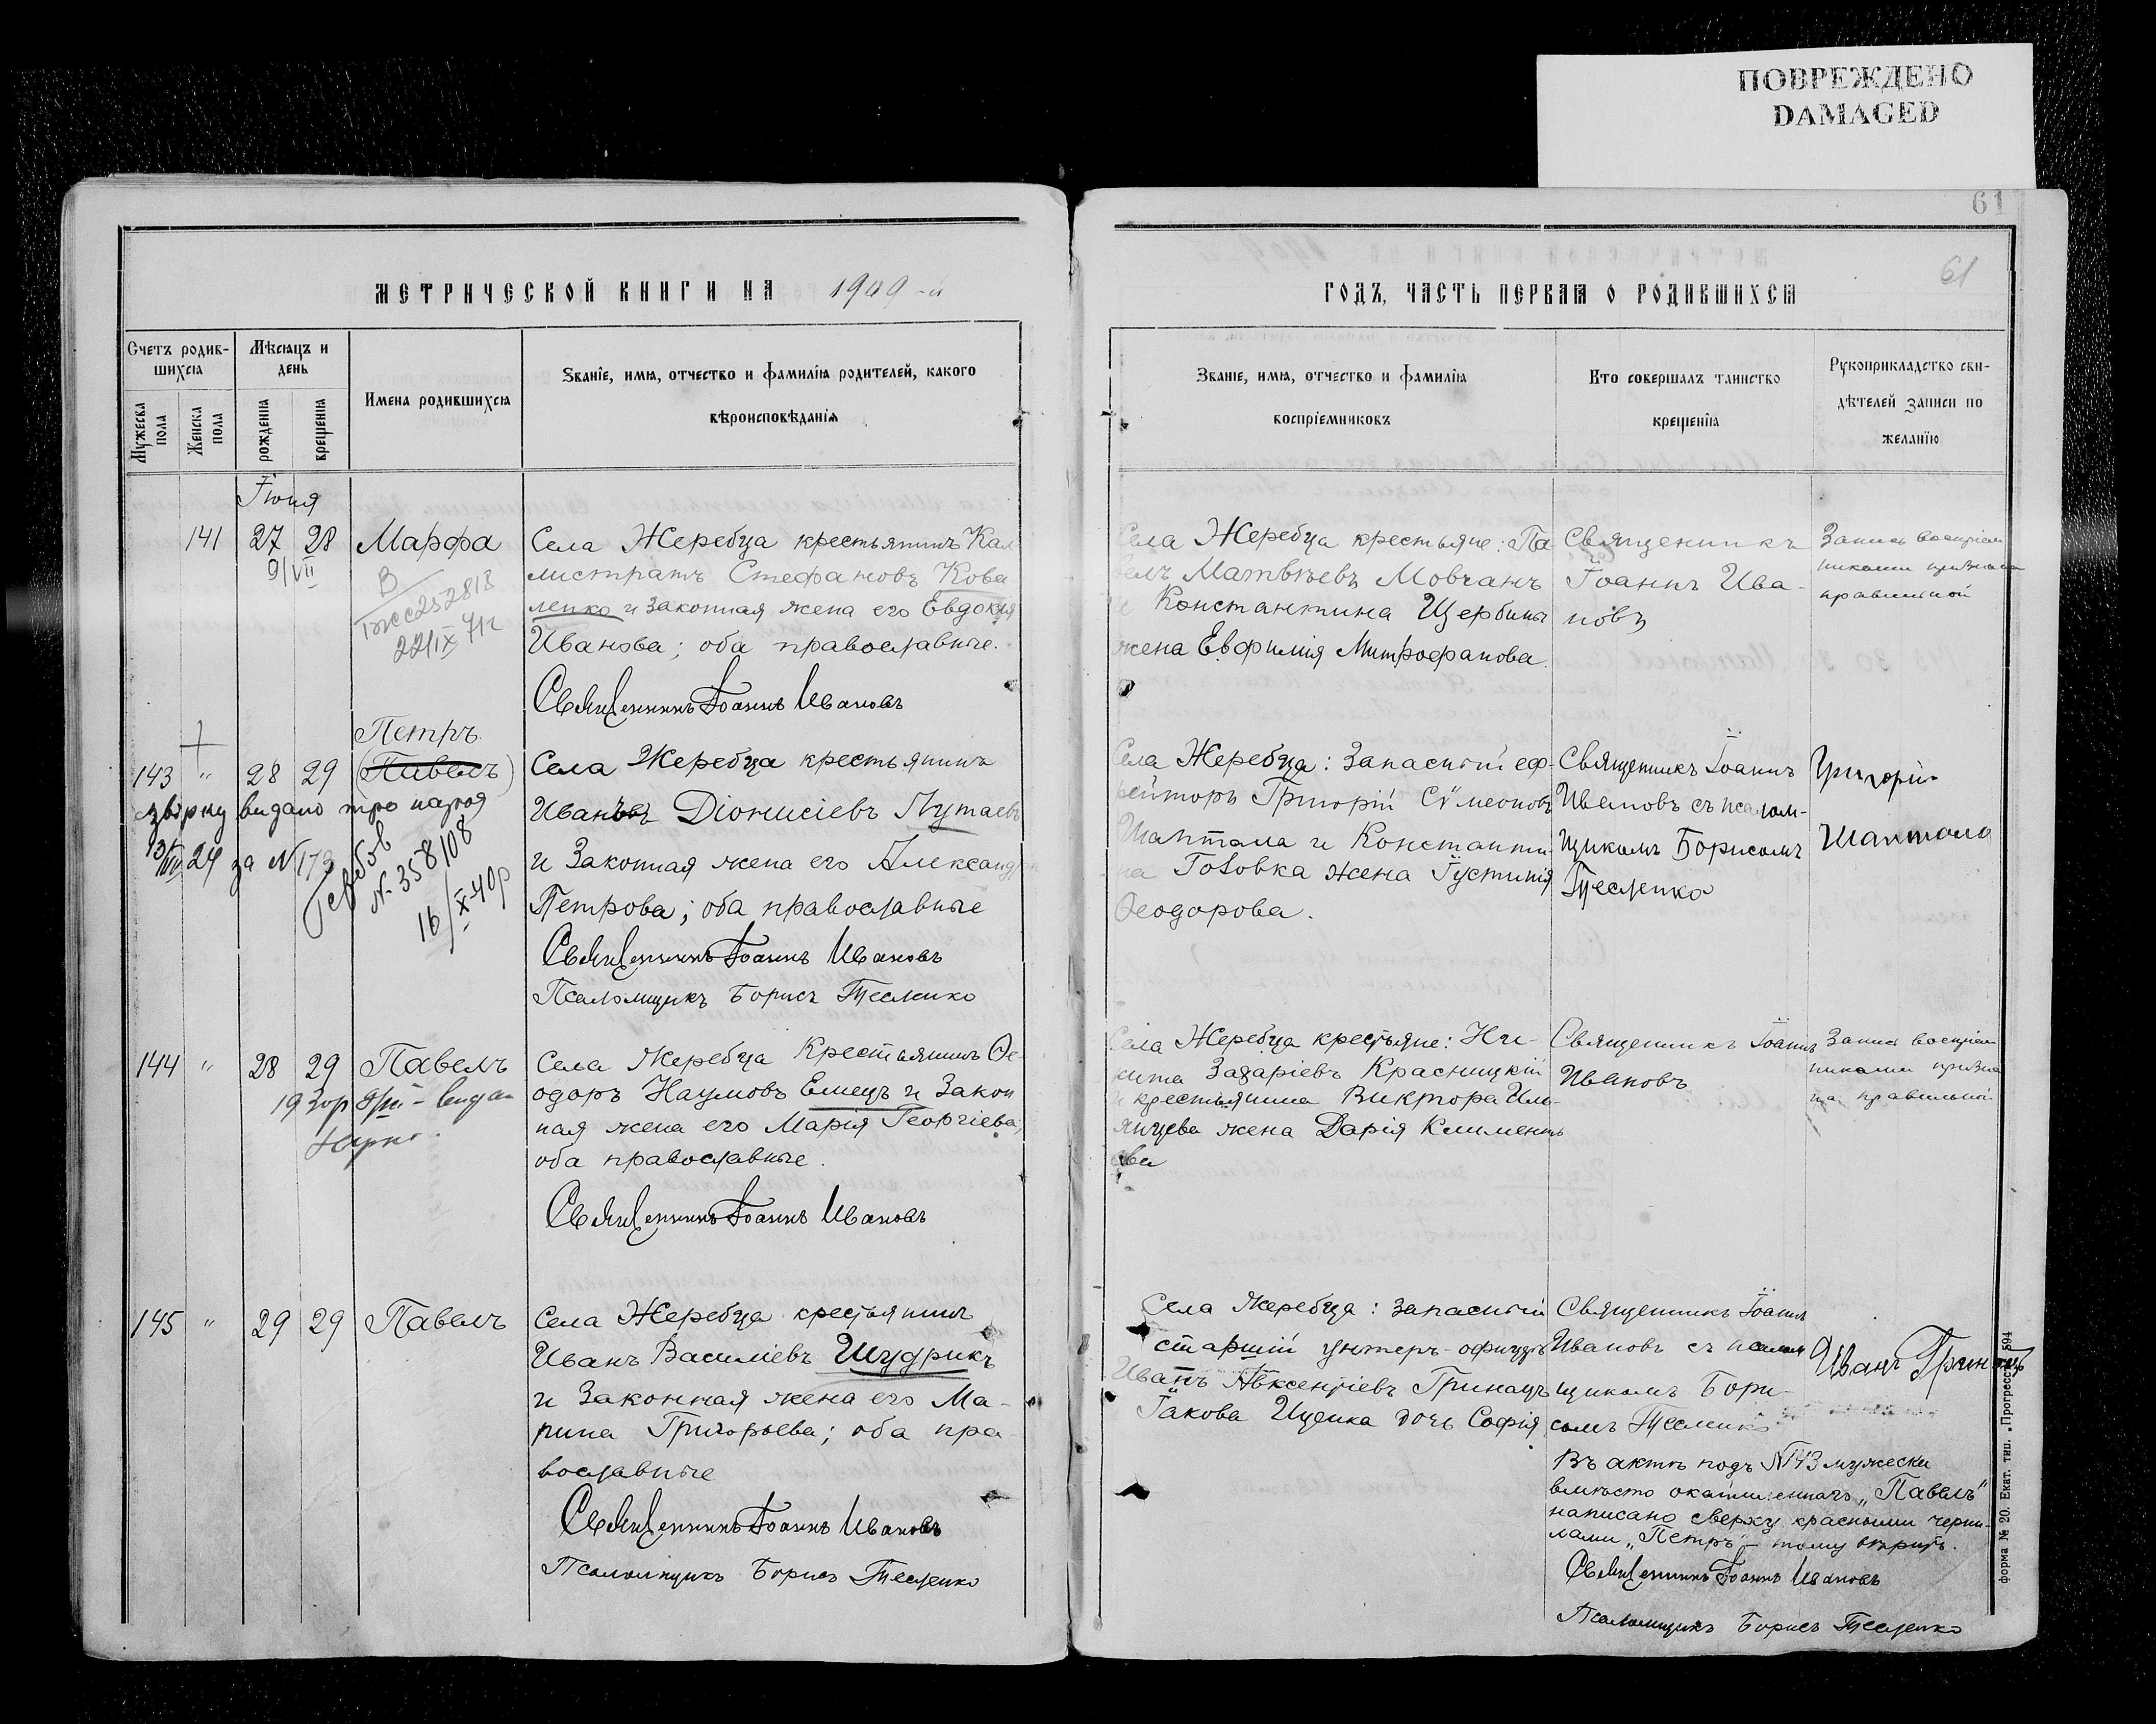 ПОВРЕЖДЕНО
DAMAGED
61
61
МЕТРИЧЕСКОЙ КНИГИ НА 1909-й
ГОДЪ, ЧАСТЬ ПЕРВАЯ О РОДИВШИХСЯ
Счетъ родив-
шихся
Мужеска пола
Женска пола
Мѣсяцъ и
день
рожденія
крещенія
Имена родившихся
Званіе, имя, отчество и фамилія родителей, какого
вѣроисповѣданія
Званіе, имя, отчество и фамилія
воспріемниковъ
Кто совершалъ таинство
крещенія
Рукоприкладство сви-
дѣтелей записи по
желанію
Іюня
141 27 28 Марфа
9/VII
22/IX 71г
Села Жеребца крестьянинъ Кал
листратъ Стефановъ Кова
ленко и законная жена его Евдокія
Иванова; оба православные.
Священникъ Іоаннъ Ивановъ
Села Жеребца крестьяне: Па-
велъ Матвѣевъ Мовчанъ
и Константина Щербины
жена Евфимія Митрофанова.
Священникъ
Іоаннъ Ива-
новъ
Запись воспріем
никами признана
правильной
Петръ
143 " 28 29 (Павелъ)
видано про народ
24 за №173
№ 358108
16/X-40р
Села Жеребца крестьянинъ
Иванъ Діонисіевъ Путаевъ
и Законная жена его Александра
Петрова; оба православные
Священникъ Іоаннъ Ивановъ
Псаломщикъ Борисъ Тесленко
Села Жеребца: Запасный еф-
рейторъ Григорій Сѵмеоновъ
Шаптала и Константи
на Головка жена Іустинія
Ѳеодорова.
Священникъ Іоаннъ
Ивановъ съ псалом-
щикомъ Борисомъ
Тесленко
Григорій
Шаптала
144 " 28 29 Павелъ
Села Жеребца Крестьянинъ Ѳе
одоръ Наумовъ Емецъ и Закон
ная жена его Марія Георгіева;
оба православные.
Священникъ Іоаннъ Ивановъ
Села Жеребца крестьяне: Ни-
кита Захаріевъ Красницкій
и крестьянина Виктора Иль-
яшева жена Дарія Климентъ
ева
Священникъ Іоаннъ
Ивановъ
Запись воспріем
никами призна
на правильной
145 " 29 29 Павелъ
Села Жеребца крестьянинъ
Иванъ Василіевъ Шудрикъ
и Законная жена его Ма-
рина Григорьева; оба пра
вославные
Священникъ Іоаннъ Ивановъ
Псаломщикъ Борисъ Тесленко
Села Жеребца: запасный
старшій унтеръ-офицеръ
Иванъ Авксентіевъ Гринацъ
Іакова Ищенка дочь Софія
Священникъ Іоаннъ
Ивановъ съ псалом
щикомъ Бори-
сомъ Тесленко
Иванъ Гринацъ
Въ актѣ подъ №143 мужеска
вмѣсто "Павелъ"
написано сверху красными черни-
лами "Петръ"
Священникъ Іоаннъ Ивановъ
Псаломщикъ Борисъ Тесленко
форма № 20. Екат. тип. „Прогрессъ" 594